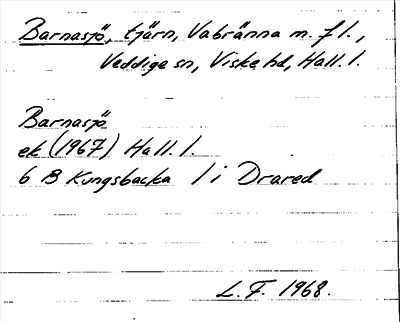 Barnasjö, tjärn, Vabränna m. fl.,
Veddige sn, Viske hd, Hall. l.
Barnasjö
ek (1967) Hall. l.
6 B Kungsbacka 1 i Drared
L. F. 1968.